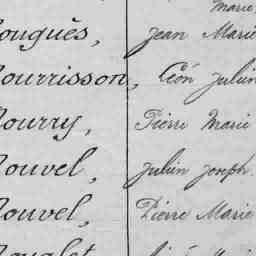 Marie,
ouguès, Jean Marie
ourrisson, Léon Julien
ourry, Pierre Marie
ouvel, Julien Joseph
ouvel, Pierre Marie